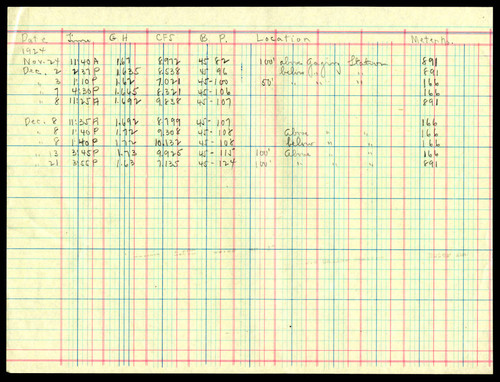 Date Time G H CFS B P. Location Meter No.
1924
Nov. 24 11:40 A 1.67 8.972 45- 82 100' above Gaging Station 891
Dec. 2 2:37 P 1.635 8.538 45- 96 below 891
" 3 1:10 P 1.62 7.021 45-100 50' " " 166
" 7 4:30 P 1.665 8.321 45-106 166
" 8 11:25 A 1.692 9.838 45-107 891
Dec. 8 11:35 A 1.692 8.799 45-107 166
" 8 1:40 P 1.72 9.308 45-108 Above " " 166
" 8 1:40 P 1.72 10.132 45-108 below " " 166
" 13 3:45 P 1.73 9.925 45-115 100' Above " " 166
" 21 3:55 P 1.63 7.135 45-124 100' " " " 891